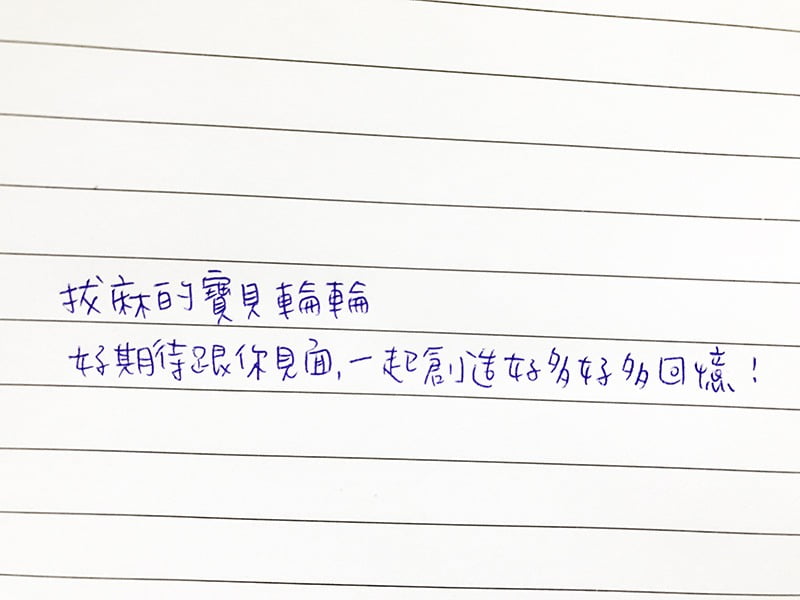 拔麻的寶貝輪輪
好期待跟你見面,一起創造好多好多回憶!